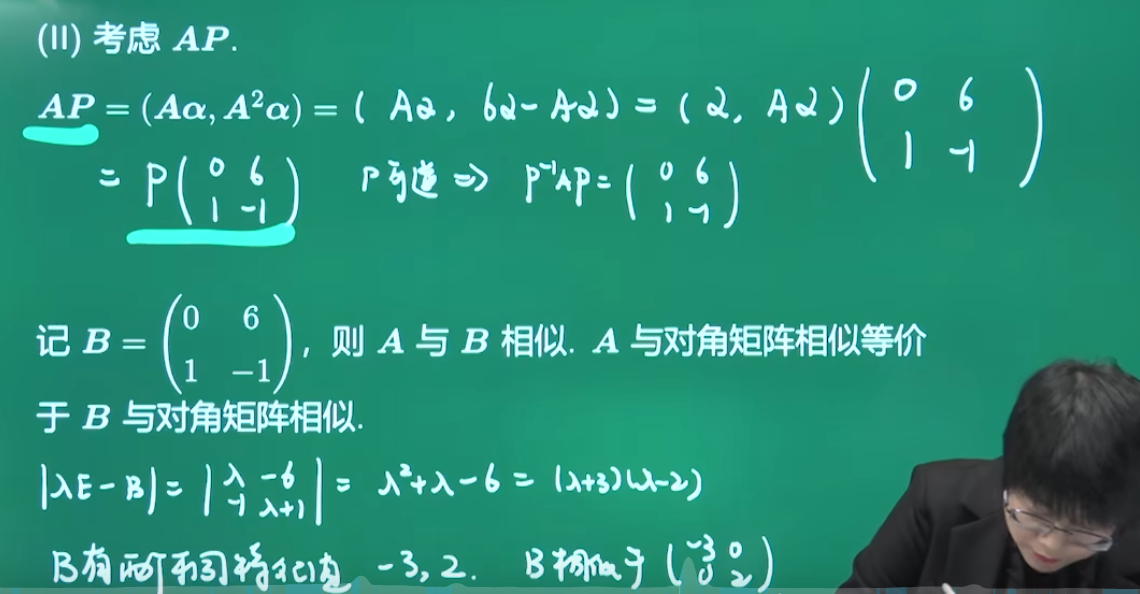 (II) 考虑 AP.
AP = (Aα, A²α) = ( Aα, 6α-Aα ) = ( α, Aα ) ( 0 6
1 -1 )
= P ( 0 6
1 -1 ) P可逆 => P⁻¹AP = ( 0 6
1 -1 )
记 B = ( 0 6
1 −1 ), 则 A 与 B 相似. A 与对角矩阵相似等价
于 B 与对角矩阵相似.
|λE-B| = | λ -6
-1 λ+1 | = λ²+λ-6 = (λ+3)(λ-2)
B有两个不同特征值 -3, 2. B相似于 ( -3 0
0 2 )